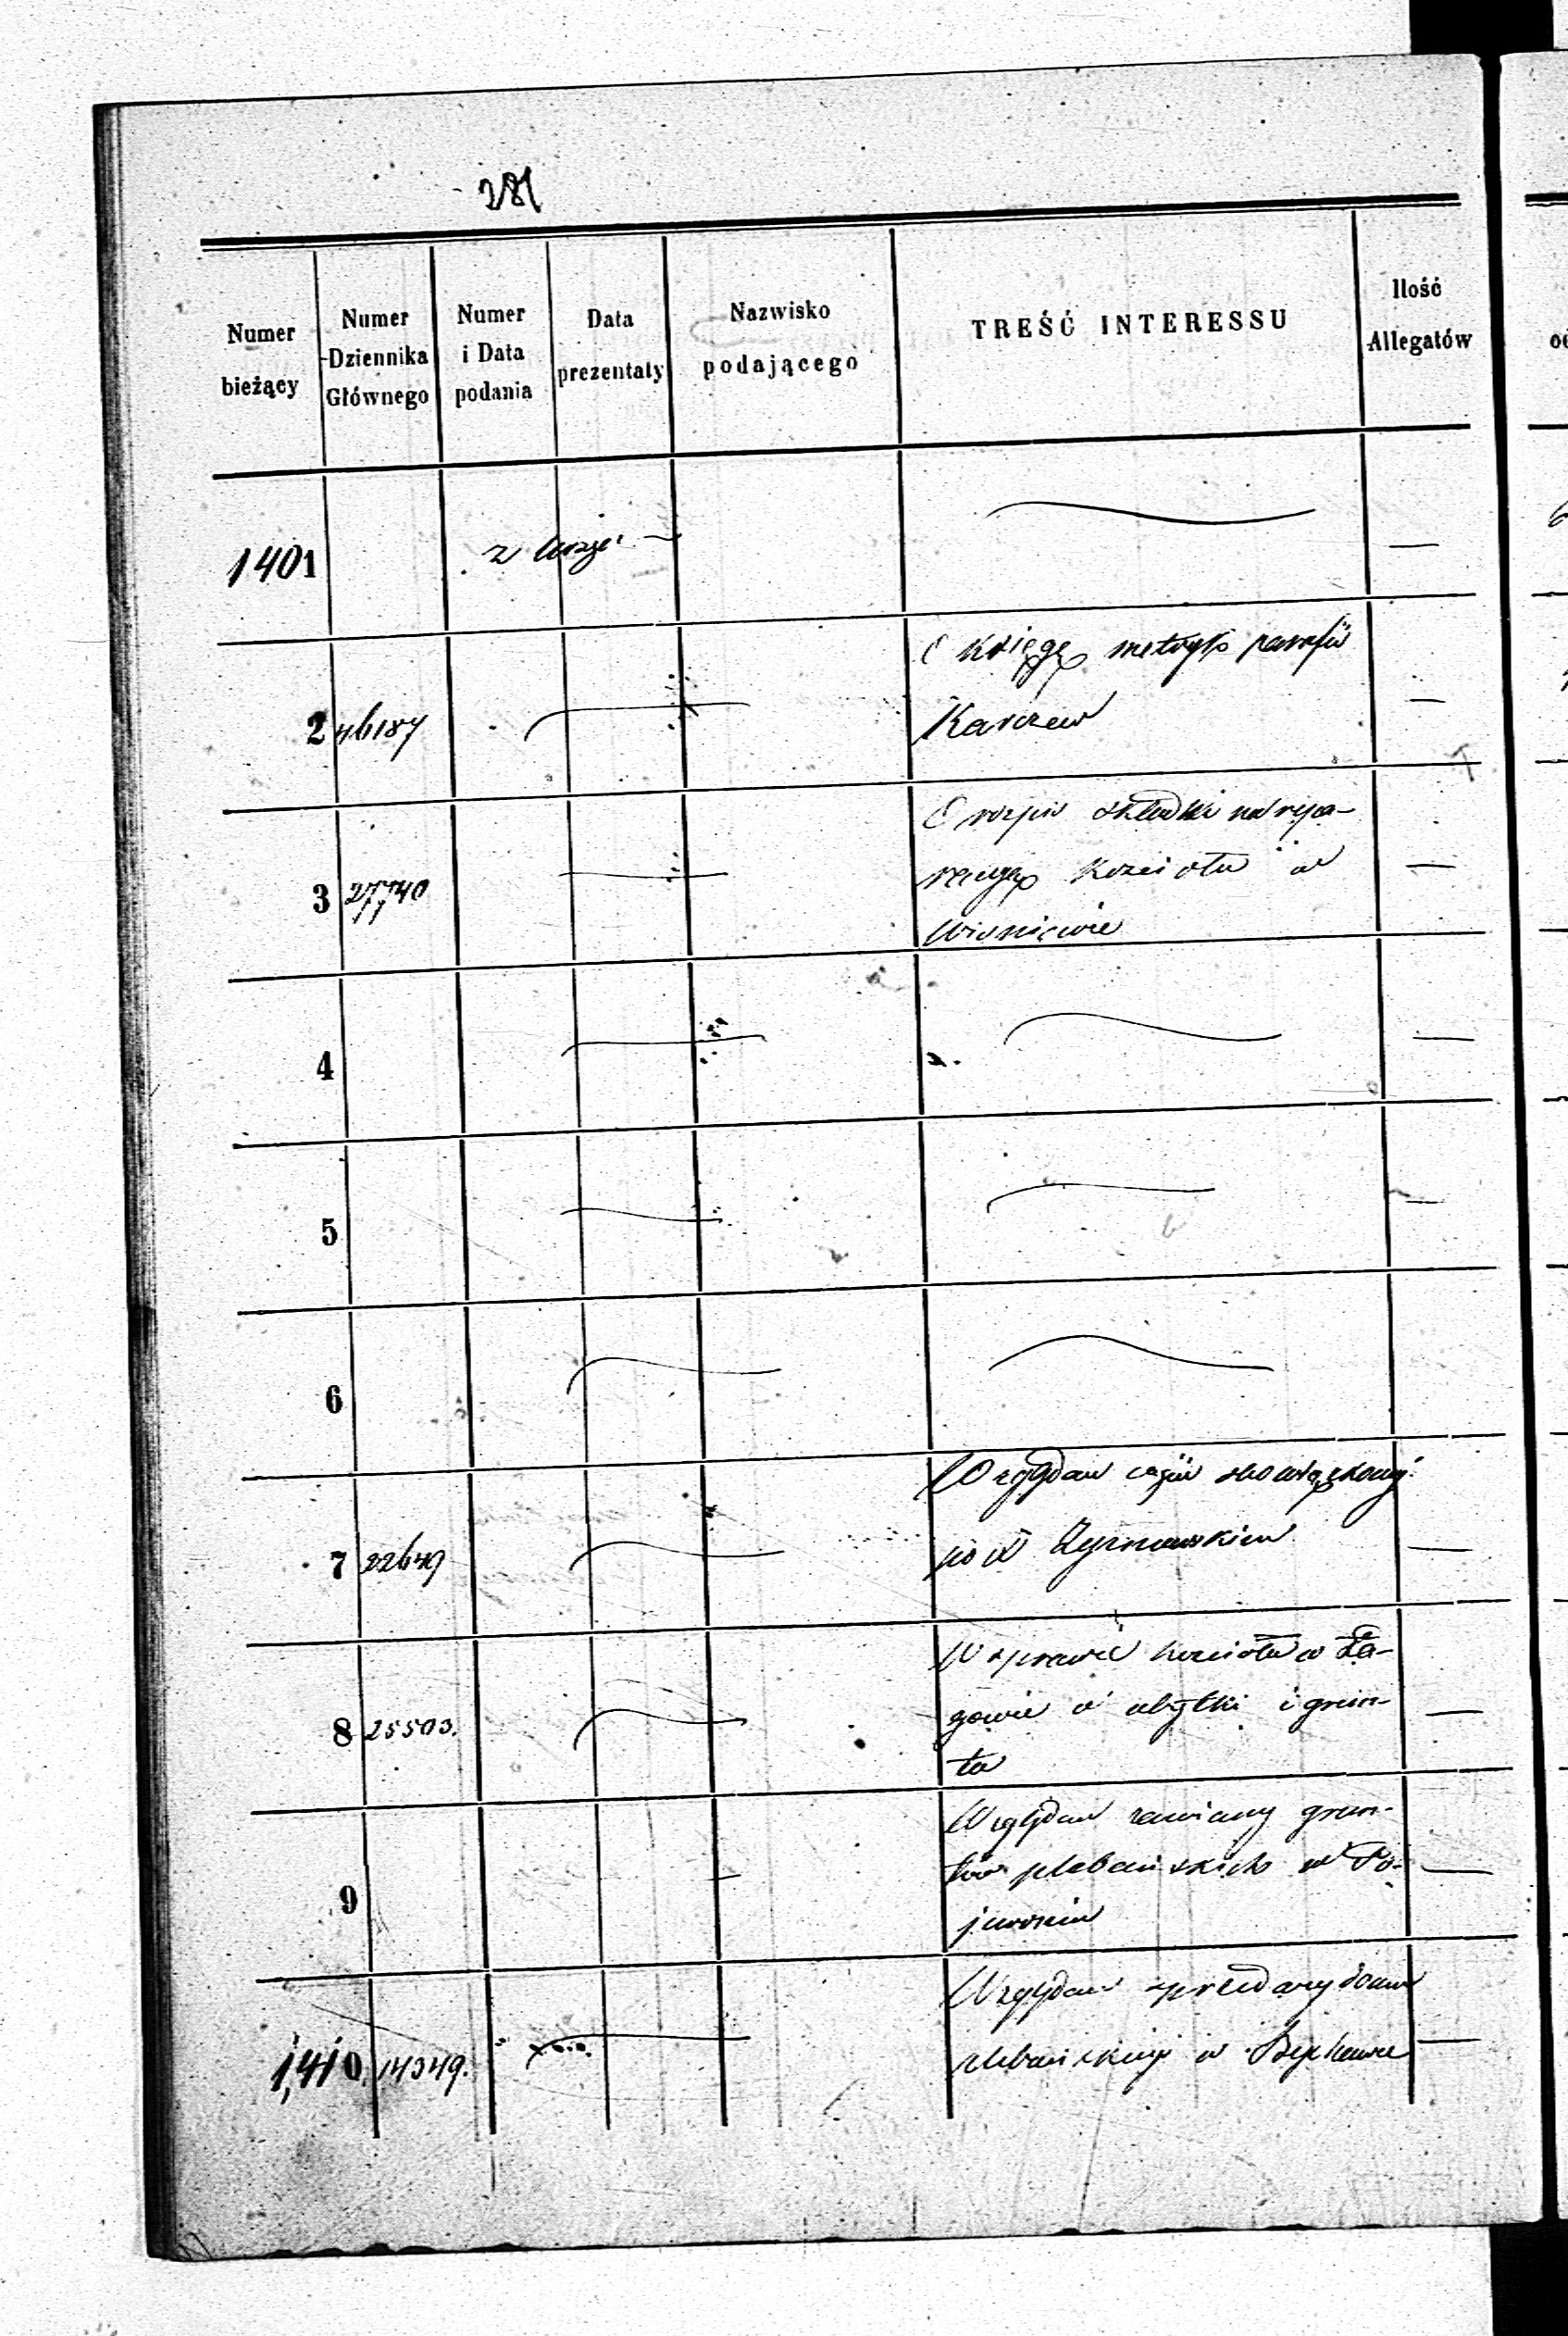 281
Numer bieżący
Numer Dziennika Głównego
Numer i Data podania
Data prezentaty
Nazwisko podającego
TREŚĆ INTERESSU
Ilość Allegatów
1401 z kurji —
—
2 46187
O księgę metryk parafii
Karczew
—
3 27740
O rozpis składki na repa-
racyę kościoła w
Wiśniewie
—
4
—
5
—
6
7 22649
Względem
po X
—
8 25503.
W sprawie kościoła w Ła-
gowie o użytki i grun-
ta
—
9
Względem zamiany grun-
tów plebańskich w
—
1,410. 14349.
Względem sprzedaży domu
plebańskiego w
—